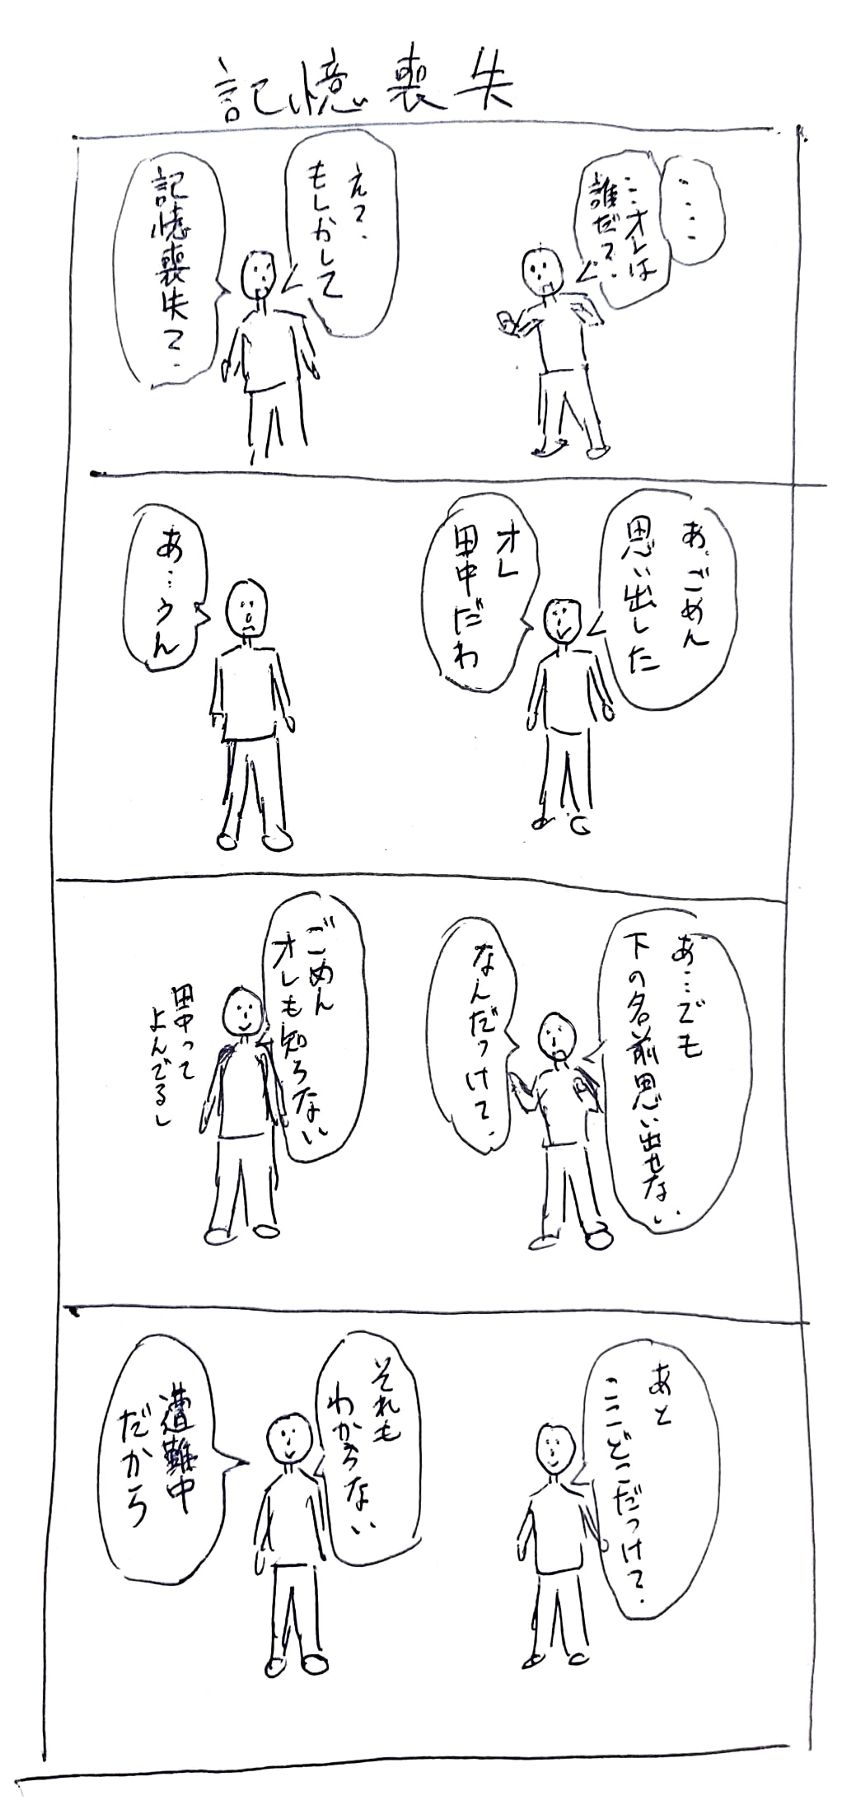 記憶喪失
‥‥
…オレは
誰だ?
え?
もしかして
記憶喪失?
あ、ごめん
思い出した
オレ
田中だわ
あ…うん
あ…でも
下の名前思い出せない
なんだっけ?
ごめん
オレも知らない
田中って
よんでるし
あと
ここどこだっけ?
それも
わからない
遭難中
だから